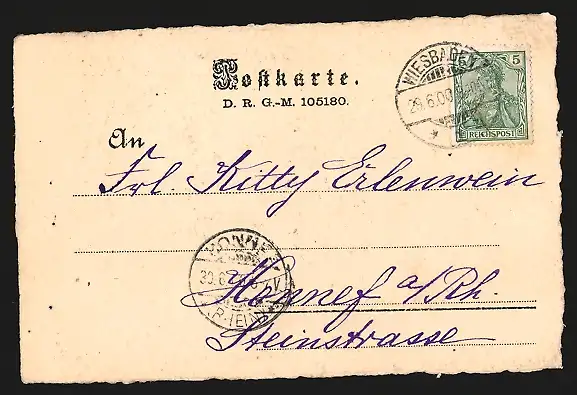 Postkarte.
D. R. G.-M. 105180.
WIESBADEN
29.6.00
5
REICHSPOST
An
Frl. Kitty Erlenwein
HONNEF
30.6.
V
(RHEIN)
Honnef a/Rh.
Steinstrasse